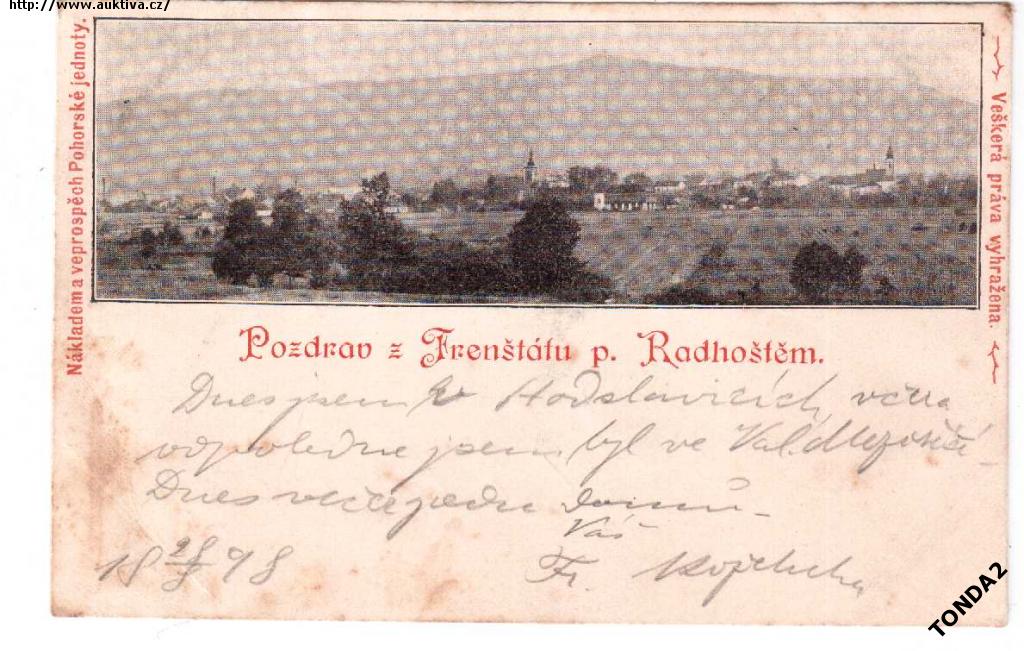 http://www.auktiva.cz/
Nákladem a veprospěch Pohorské jednoty.
Veškerá práva vyhražena.
Pozdrav z Frenštátu p. Radhoštěm.
Dnes jsem v Hodslavicích, včera
odpoledne jsem byl ve Val. Meziříčí
Dnes večer jedu domů
Váš
18 28/8 98 Fr.
TONDA2